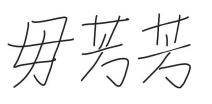 毋芳芳